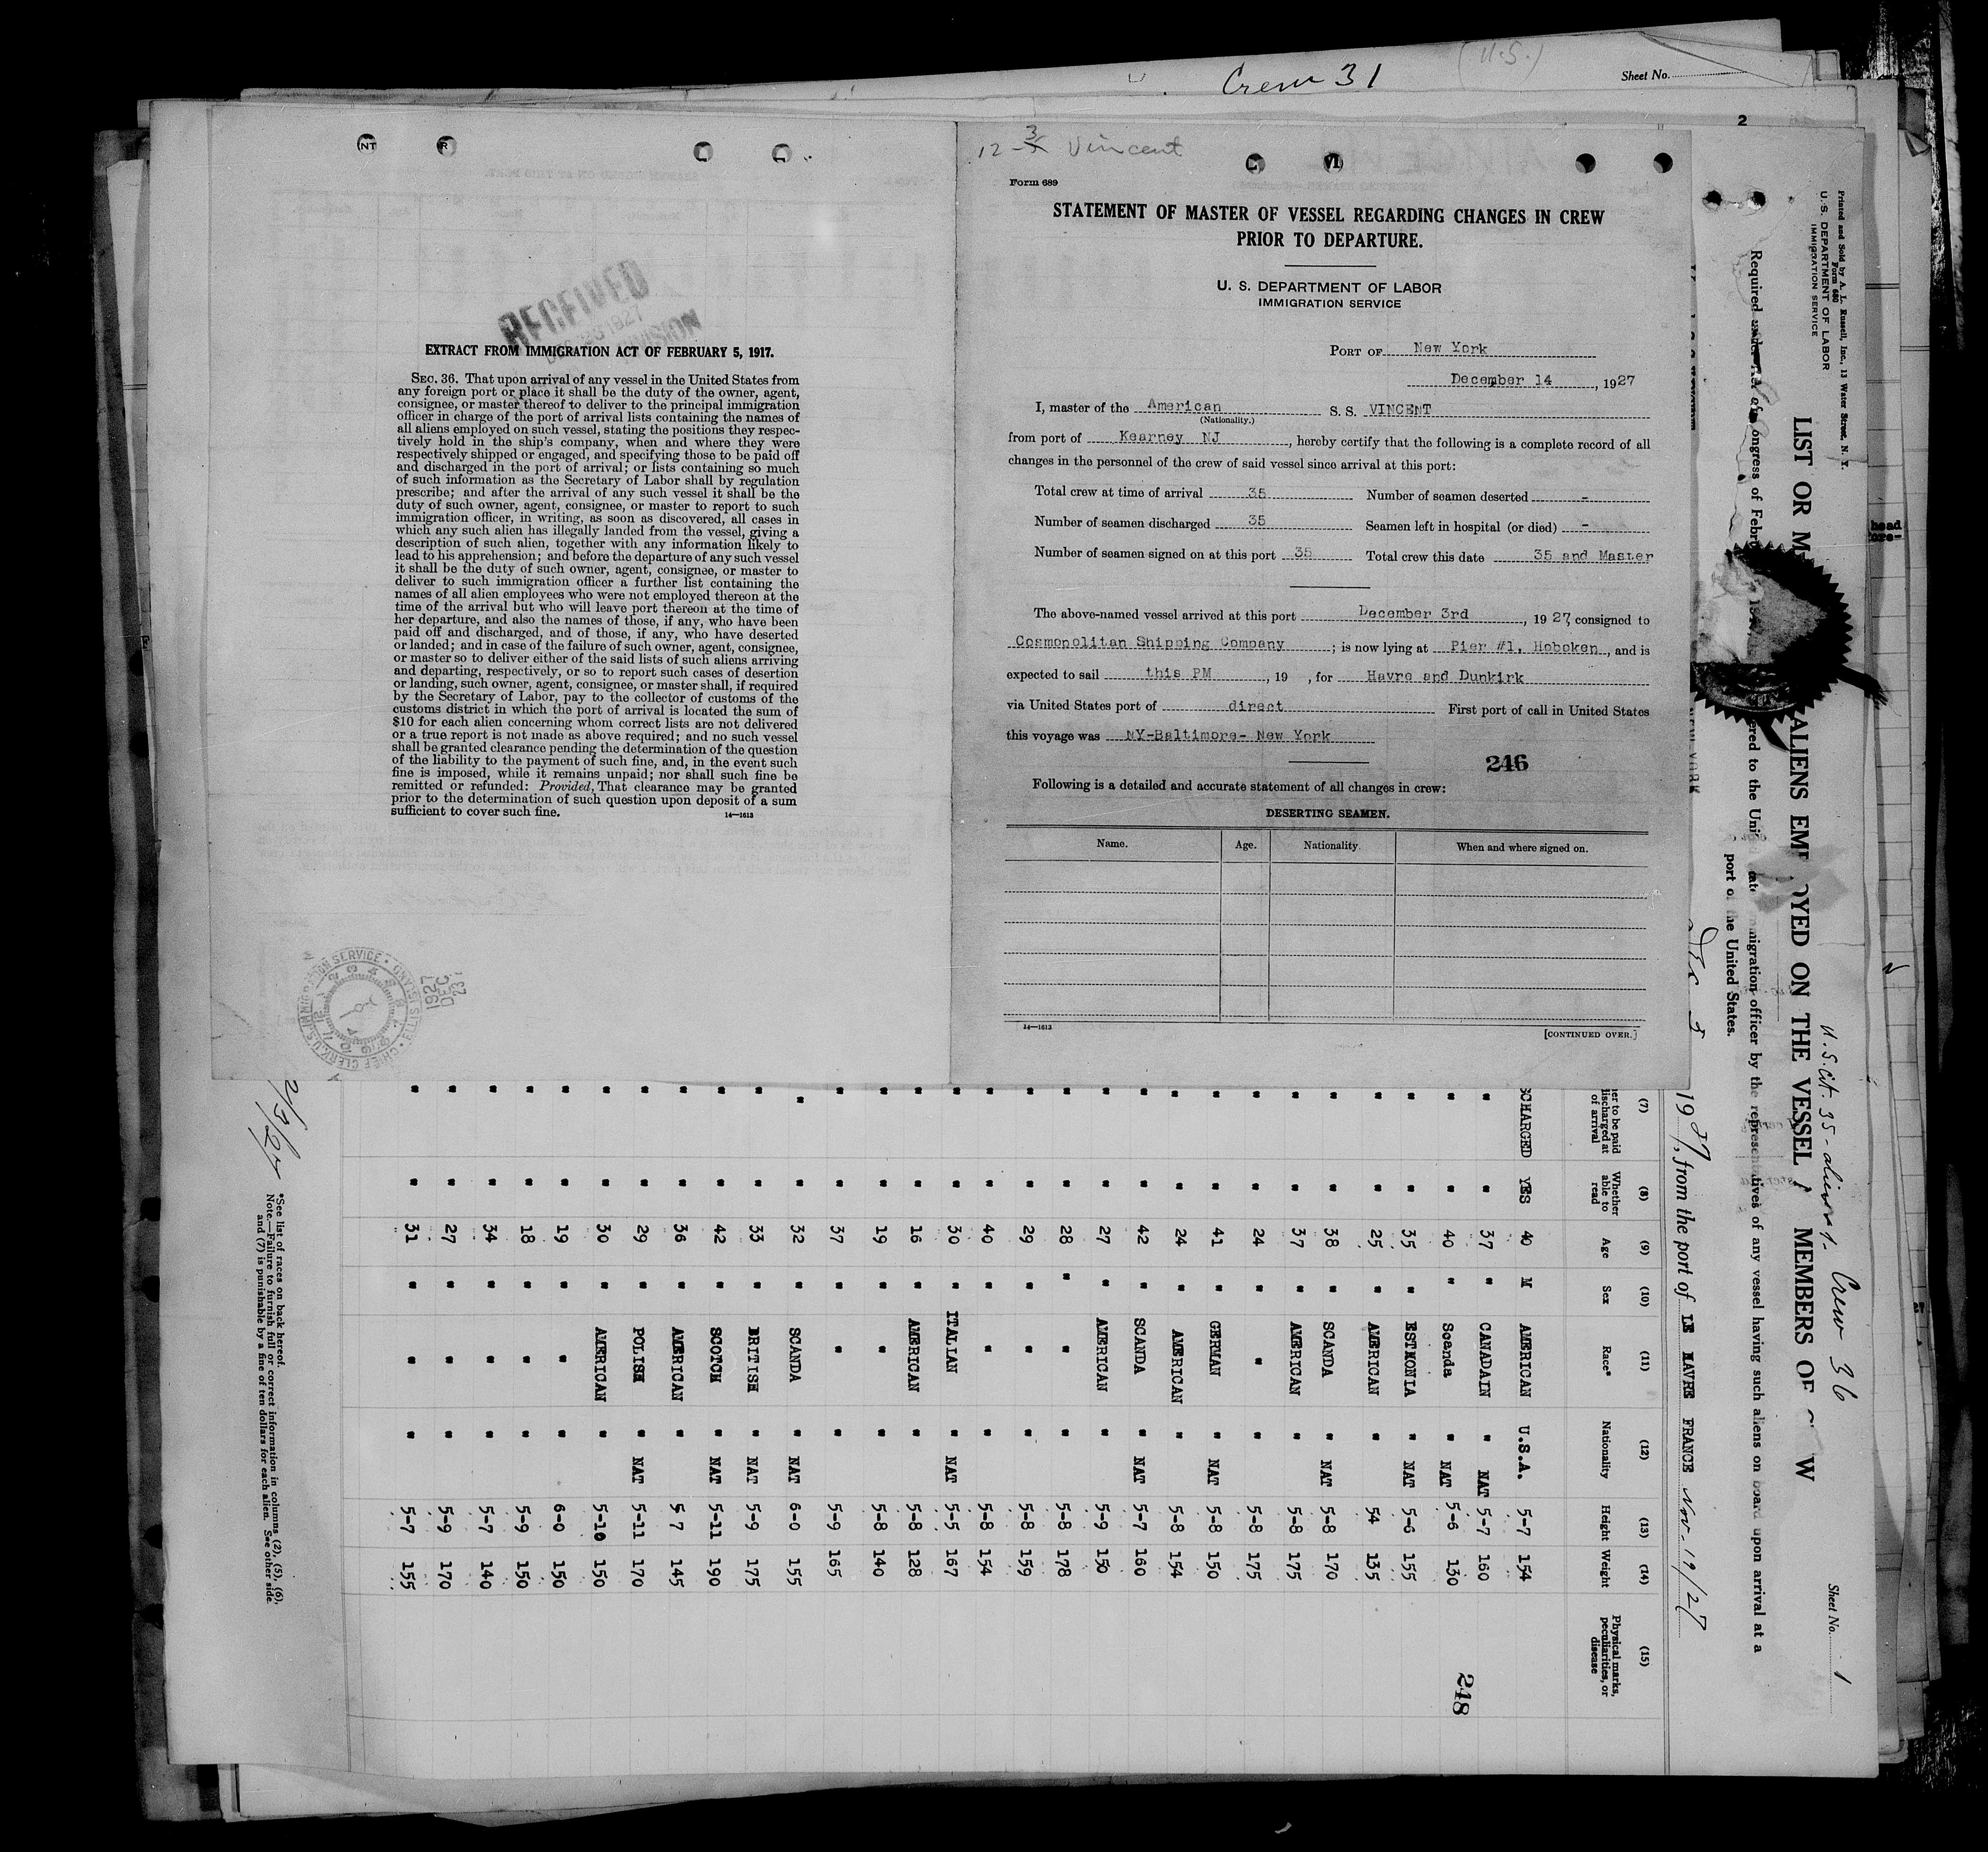 (U.S.)
Crew 31
Sheet No.
2
NT R
RECEIVED
DEC 23 1927
DIVISION
EXTRACT FROM IMMIGRATION ACT OF FEBRUARY 5, 1917.
SEC. 36. That upon arrival of any vessel in the United States from
any foreign port or place it shall be the duty of the owner, agent,
consignee, or master thereof to deliver to the principal immigration
officer in charge of the port of arrival lists containing the names of
all aliens employed on such vessel, stating the positions they respec-
tively hold in the ship's company, when and where they were
respectively shipped or engaged, and specifying those to be paid off
and discharged in the port of arrival; or lists containing so much
of such information as the Secretary of Labor shall by regulation
prescribe; and after the arrival of any such vessel it shall be the
duty of such owner, agent, consignee, or master to report to such
immigration officer, in writing, as soon as discovered, all cases in
which any such alien has illegally landed from the vessel, giving a
description of such alien, together with any information likely to
lead to his apprehension; and before the departure of any such vessel
it shall be the duty of such owner, agent, consignee, or master to
deliver to such immigration officer a further list containing the
names of all alien employees who were not employed thereon at the
time of the arrival but who will leave port thereon at the time of
her departure, and also the names of those, if any, who have been
paid off and discharged, and of those, if any, who have deserted
or landed; and in case of the failure of such owner, agent, consignee,
or master so to deliver either of the said lists of such aliens arriving
and departing, respectively, or so to report such cases of desertion
or landing, such owner, agent, consignee, or master shall, if required
by the Secretary of Labor, pay to the collector of customs of the
customs district in which the port of arrival is located the sum of
$10 for each alien concerning whom correct lists are not delivered
or a true report is not made as above required; and no such vessel
shall be granted clearance pending the determination of the question
of the liability to the payment of such fine, and, in the event such
fine is imposed, while it remains unpaid; nor shall such fine be
remitted or refunded: Provided, That clearance may be granted
prior to the determination of such question upon deposit of a sum
sufficient to cover such fine.
14—1613
CHIEF CLERK, U.S. IMMIGRATION SERVICE • ELLIS ISLAND
1927
DEC
23
12-3 Vincent
VI.
Form 689
STATEMENT OF MASTER OF VESSEL REGARDING CHANGES IN CREW
PRIOR TO DEPARTURE.
U. S. DEPARTMENT OF LABOR
IMMIGRATION SERVICE
PORT OF New York
December 14, 1927
I, master of the American S. S. VINCENT
(Nationality.)
from port of Kearney NJ, hereby certify that the following is a complete record of all
changes in the personnel of the crew of said vessel since arrival at this port:
Total crew at time of arrival 35 Number of seamen deserted -
Number of seamen discharged 35 Seamen left in hospital (or died) -
Number of seamen signed on at this port 35 Total crew this date 35 and Master
The above-named vessel arrived at this port December 3rd, 1927, consigned to
Cosmopolitan Shipping Company; is now lying at Pier #1, Hoboken, and is
expected to sail this PM, 19 , for Havre and Dunkirk
via United States port of direct First port of call in United States
this voyage was NY-Baltimore- New York
246
Following is a detailed and accurate statement of all changes in crew:
DESERTING SEAMEN.
Name. Age. Nationality. When and where signed on.
14—1613
[CONTINUED OVER.]
Printed and Sold by A. L. Russell, Inc., 13 Water Street, N. Y.
Form 680
U. S. DEPARTMENT OF LABOR
IMMIGRATION SERVICE
U.S. cit. 35 - aliens 1 - Crew 36
Sheet No. 1
LIST OR ALIENS EMPLOYED ON THE VESSEL MEMBERS OF
Required under ongress of Febr red to the Uni migration officer by the representatives of any vessel having such aliens on board upon arrival at a
port of the United States.
NEW YORK
Dec 3 1927, from the port of LE HAVRE FRANCE Nov-19/27
(7) (8) (9) (10) (11) (12) (13) (14) (15)
er to be paid discharged at of arrival Whether able to read Age Sex Race* Nationality Height Weight Physical marks, peculiarities, or disease
SCHARGED YES 40 M AMERICAN U.S.A. 5-7 154
" " 37 " CANADAIN " NAT 5-7 160
" " 40 " Scanda " NAT 5-6 130
248
" " 35 " ESTHONIA " NAT 5-6 155
" " 25 " AMERICAN " 54 135
" " 38 " SCANDA " NAT 5-8 170
" " 37 " AMERICAN " 5-8 175
" " 24 " " " 5-8 175
" " 41 " GERMAN " NAT 5-8 150
" " 24 " AMERICAN " 5-8 154
" " 42 " SCANDA " NAT 5-7 160
" " 27 " AMERICAN " 5-9 150
" " 28 " " 5-8 178
" " 29 " " 5-8 159
" " 40 " " " 5-8 154
" " 30 " ITALIAN " NAT 5-5 167
" " 16 " AMERICAN " 5-8 128
" " 19 " " " 5-8 140
" " 37 " " " 5-9 165
" " 32 " SCANDA " NAT 6-0 155
" " 33 " BRITISH " NAT 5-9 175
" " 42 " SCOTCH " NAT 5-11 190
" " 36 " AMERICAN " 5 7 145
" " 29 " POLISH " NAT 5-11 170
" " 30 " AMERICAN " 5-10 150
" " 19 " " " 6-0 150
" " 18 " " " 5-9 150
" " 34 " " " 5-7 140
" " 27 " " " 5-9 170
" " 31 " " " 5-7 155
*See list of races on back hereof.
Note.—Failure to furnish full or correct information in columns (2), (5), (6),
and (7) is punishable by a fine of ten dollars for each alien. See other side.
12/3/27
head
ore-